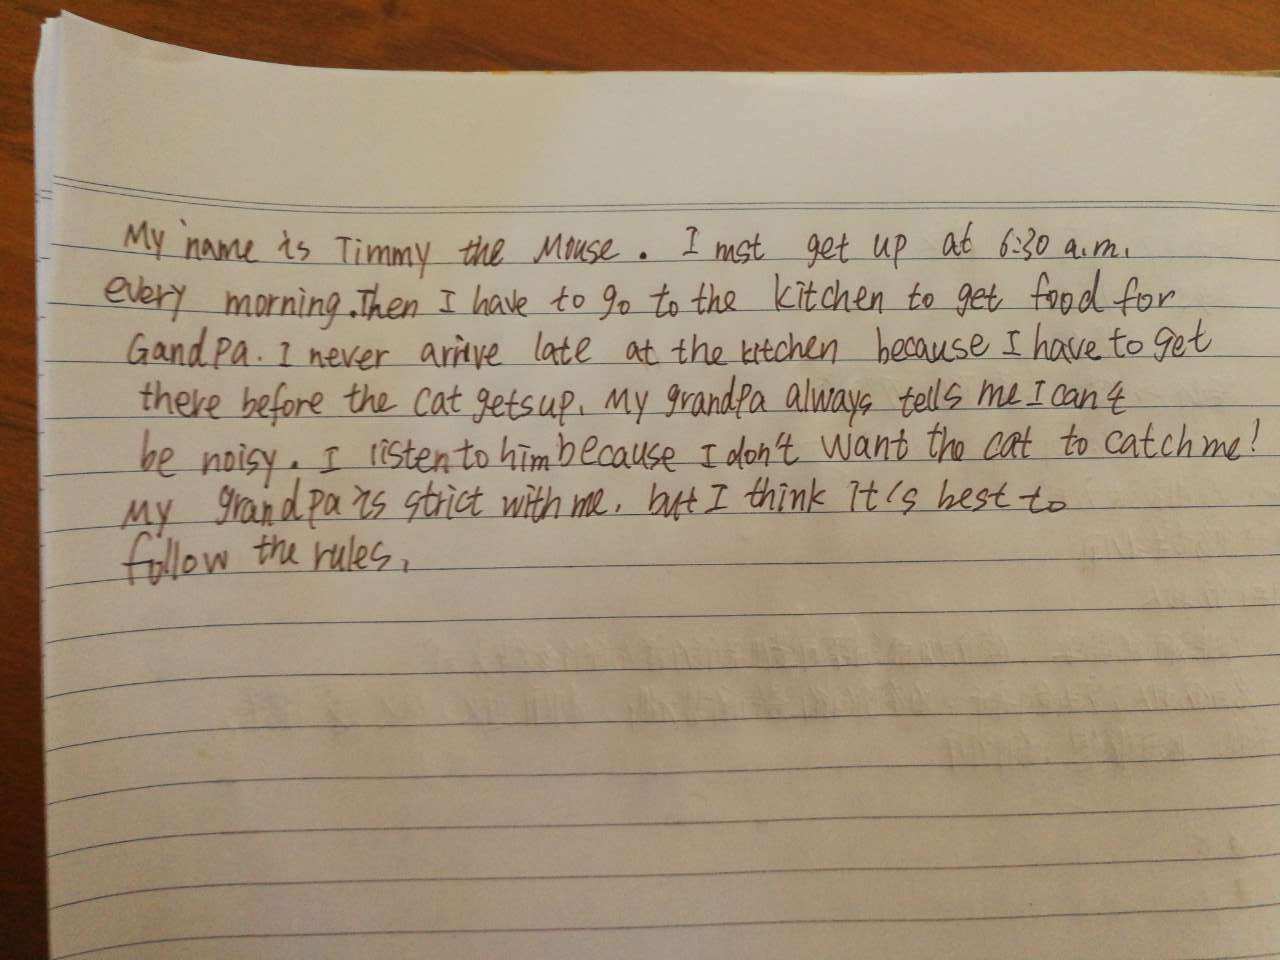 My name is Timmy the Mouse. I mst get up at 6:30 a.m.
every morning. Then I have to go to the kitchen to get food for
GandPa. I never arrive late at the kitchen because I have to get
there before the cat gets up. My grandpa always tells me I can't
be noisy. I listen to him because I don't want the cat to catch me!
My grandpa is strict with me, but I think it's best to
follow the rules.